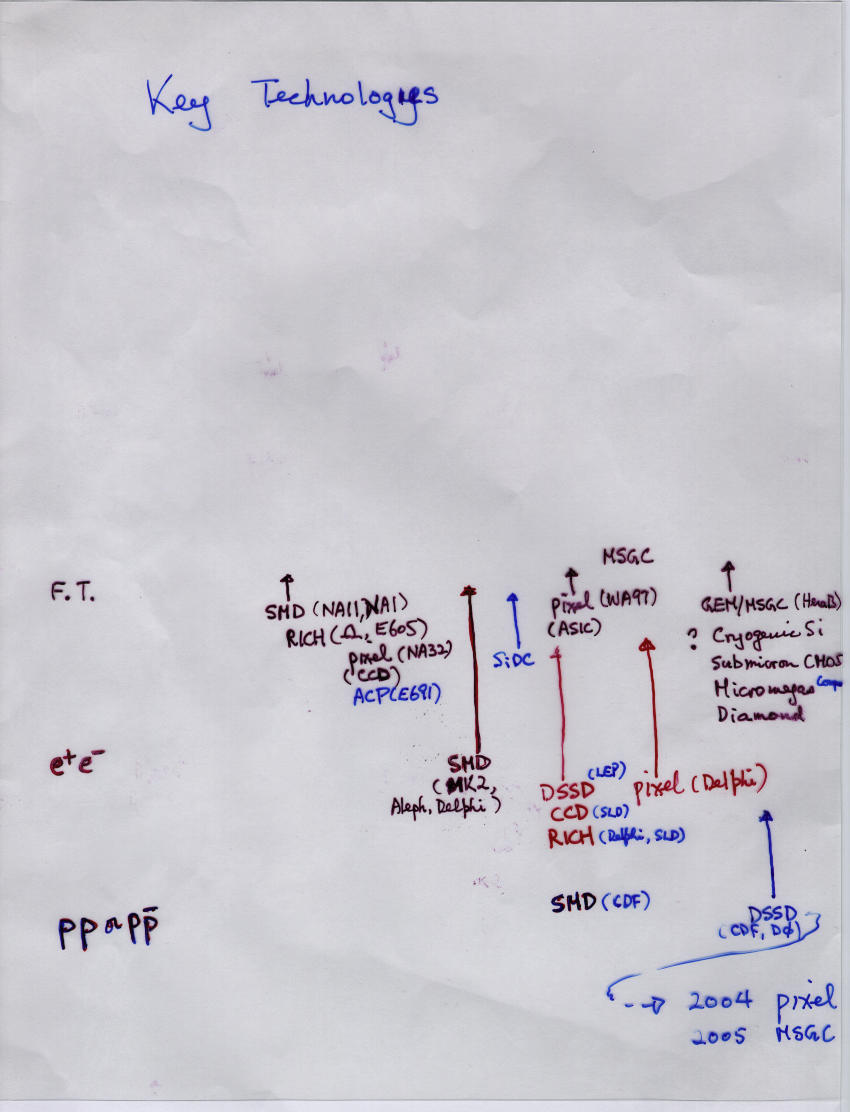 Key Technologies
MSGC
F.T.
SMD (NA11, NA1)
RICH (Ω, E605)
pixel (NA32)
(CCD)
ACP (E691)
SiDC
pixel (WA97)
(ASIC)
GEM/MSGC (HeraB)
? Cryogenic Si
Submicron CMOS
Micromegas
Diamond
e⁺e⁻
SMD
(MK2,
Aleph, Delphi)
DSSD (LEP)
CCD (SLD)
RICH (Delphi, SLD)
pixel (Delphi)
pp or pp̄
SMD (CDF)
DSSD
(CDF, DØ)
--> 2004 pixel
2005 MSGC